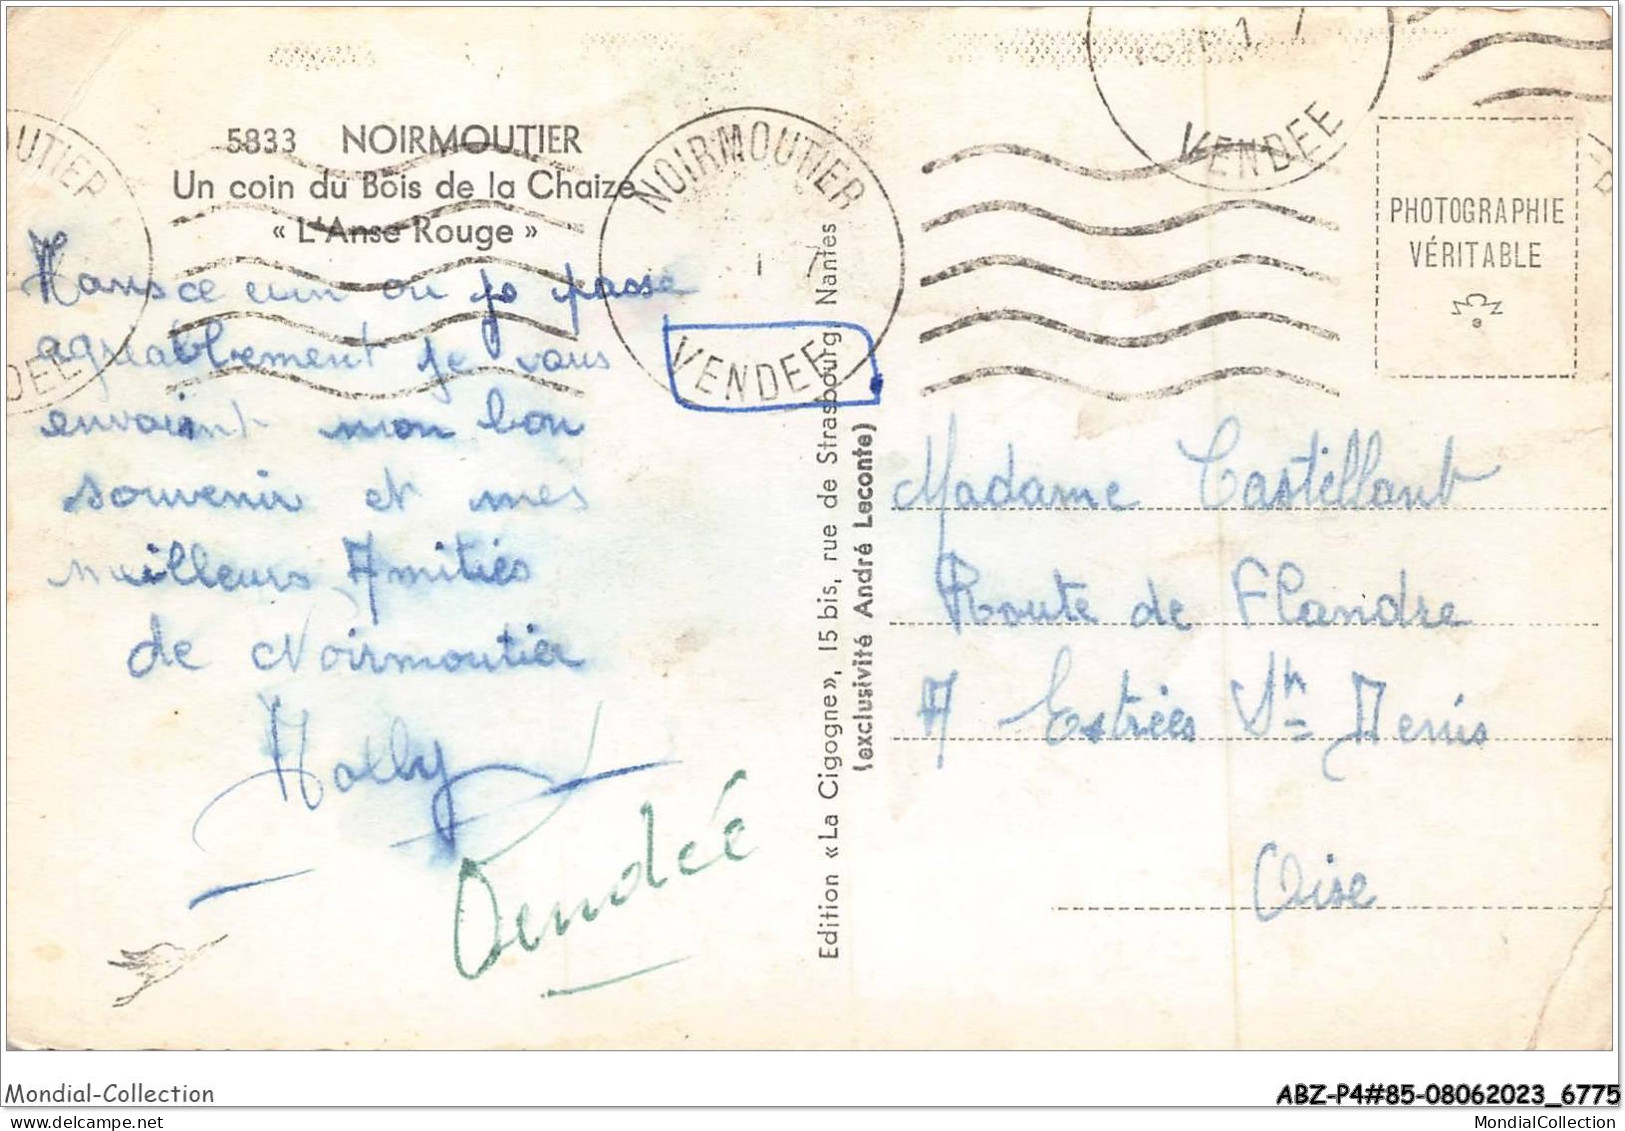 5833 NOIRMOUTIER
Un coin du Bois de la Chaize
« L'Anse Rouge »
ce coin ou je passe
agréablement je vous
envoient mon bon
souvenir et mes
meilleurs Amitiés
de Noirmoutier
Vendée
NOIRMOUTIER
1 7
VENDEE
OUTIER
DEE
1 7
VENDEE
Edition « La Cigogne », 15 bis, rue de Strasbourg, Nantes
(exclusivité André Leconte)
PHOTOGRAPHIE
VÉRITABLE
Madame Castellant
Route de Flandre
A Estrées St Denis
Oise
Mondial-Collection
ABZ-P4#85-08062023_6775
MondialCollection
https://www.delcampe.net/fr/collections/store/Mondial-Collection